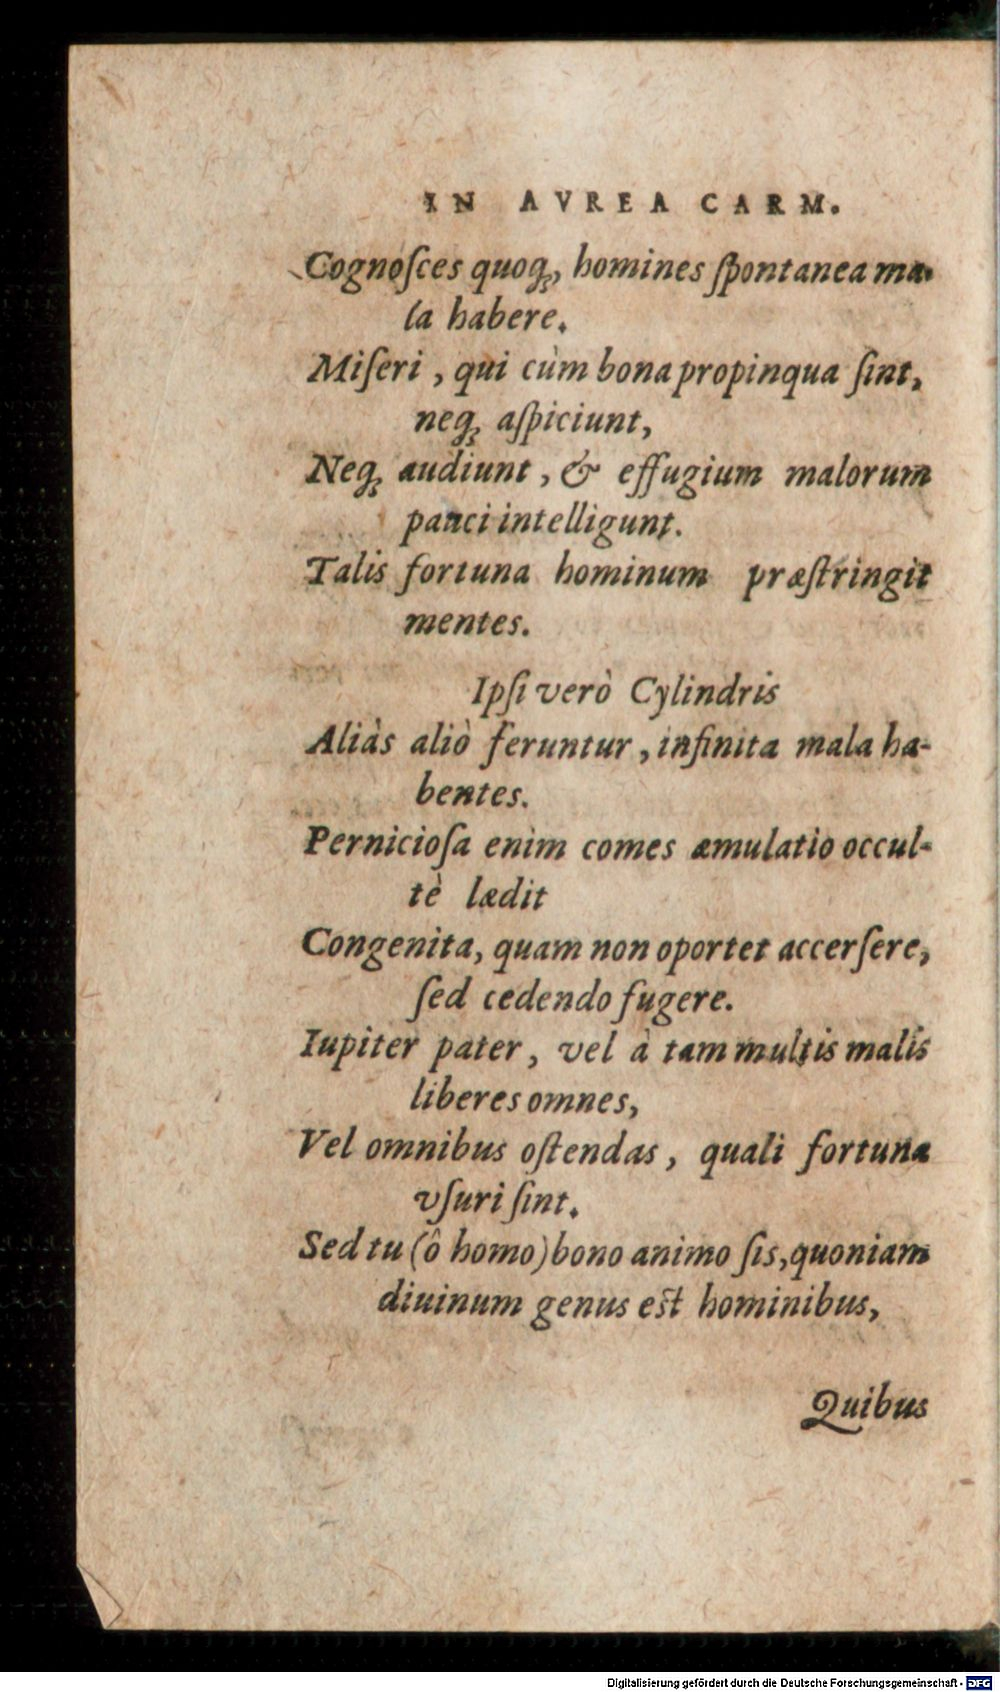 IN AVREA CARM.
Cognoſces quoq́;, homines ſpontanea ma-
la habere.
Miſeri, qui cùm bona propinqua ſint,
neq́; aſpiciunt,
Neq́; audiunt, & effugium malorum
pauci intelligunt.
Talis fortuna hominum præſtringit
mentes.
Ipſi verò Cylindris
Aliàs aliò feruntur, infinita mala ha-
bentes.
Pernicioſa enim comes æmulatio occul-
tè lædit
Congenita, quam non oportet accerſere,
ſed cedendo fugere.
Iupiter pater, vel à tam multis malis
liberes omnes,
Vel omnibus oſtendas, quali fortuna
vſuri ſint.
Sed tu (ô homo) bono animo ſis, quoniam
diuinum genus eſt hominibus,
Quibus
Digitalisierung gefördert durch die Deutsche Forschungsgemeinschaft - DFG